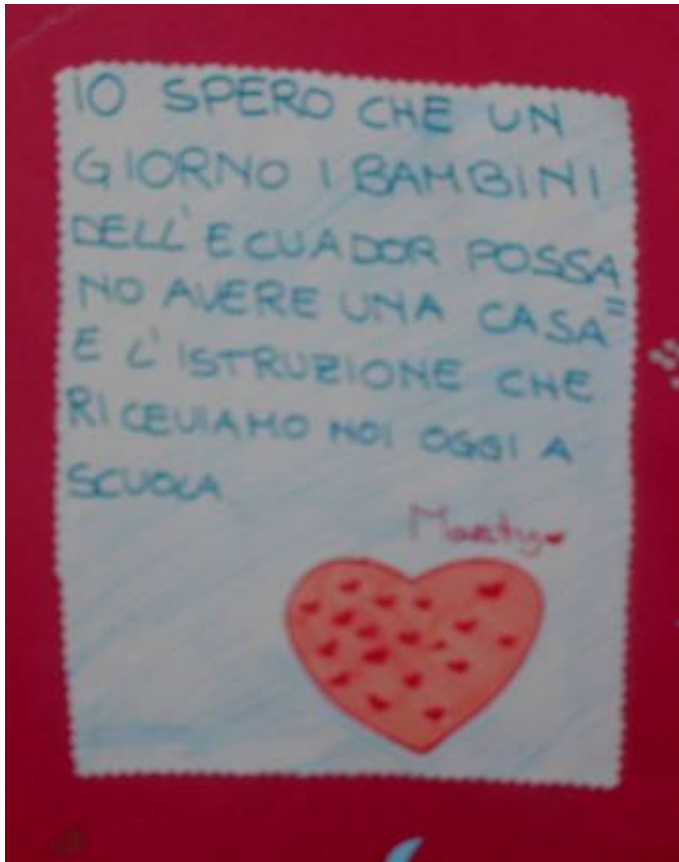 IO SPERO CHE UN
GIORNO I BAMBINI
DELL'ECUADOR POSSA=
NO AVERE UNA CASA
E L'ISTRUZIONE CHE
RICEVIAMO NOI OGGI A
SCUOLA
Marty